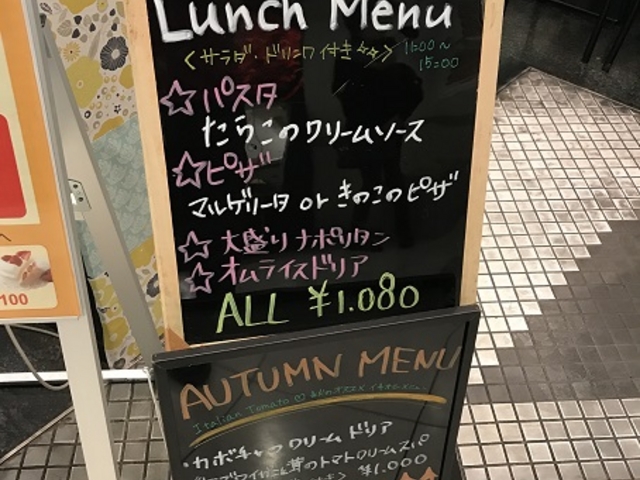 Lunch Menu
<サラダ・ドリンク付き☆☆> 11:00~
15:00
☆パスタ
たらこのクリームソース
☆ピザ
マルゲリータ or きのこのピザ
☆大盛りナポリタン
☆オムライスドリア
ALL ¥1.080
AUTUMN MENU
Italian Tomato
・カボチャクリームドリア
茸のトマトクリームスパ
¥1.000
100